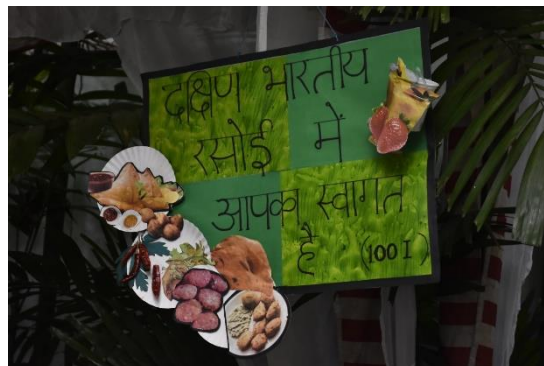 दक्षिण भारतीय
रसोई में
आपका स्वागत
है (100 I)